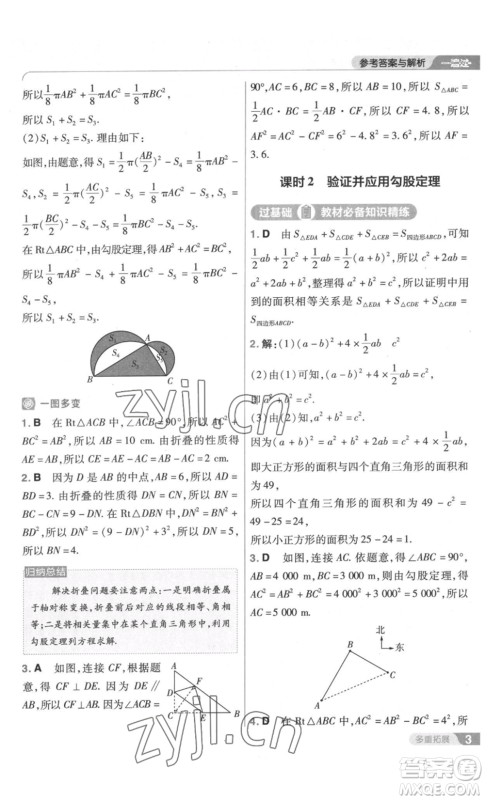 参考答案与解析 一遍过
所以 1/8 πAB² + 1/8 πAC² = 1/8 πBC²,
所以 S₁ + S₂ = S₃.
(2) S₁ + S₂ = S₃. 理由如下:
如图,由题意,得 S₁ = 1/2 π(AB/2)² - S₄ =
1/8 πAB² - S₄,
S₂ = 1/2 π(AC/2)² - S₅ = 1/8 πAC² - S₅,
1/2 π(BC/2)² = 1/8 πBC².
在 Rt△ABC 中,由勾股定理,得 AB² + AC² = BC²,
所以 S₁ + S₂ = 1/8 πAB² + 1/8 πAC² - S₄ - S₅ = 1/8 πBC²
- S₄ - S₅,
所以 S₁ + S₂ = S₃.
A
S₄ S₅
S₃
B C
一图多变
1. B 在 Rt△ACB 中,∠ACB = 90°,所以 AC² +
BC² = AB²,所以 AB = 10 cm. 由折叠的性质得
AE = AB,所以 CE = AE - AC = 2 cm.
2. B 因为 D 是 AB 的中点,AB = 6,所以 AD =
BD = 3. 由折叠的性质得 DN = CN,所以 BN =
BC - CN = 9 - DN. 在 Rt△DBN 中,DN² = BN² +
BD²,所以 DN² = (9 - DN)² + 9,所以 DN = 5,
所以 BN = 4.
归纳总结
解决折叠问题要注意两点:一是明确折叠属
于轴对称变换,折叠前对应的线段相等、角相
等;二是将相关量集中在某个直角三角形中,利用
勾股定理列方程求解.
3. A 如图,连接 CF,根据题
意,得 CF⊥DE. 因为 DE∥
AB,所以 CF⊥AB. 因为∠ACB =
90°,AC = 6,BC = 8,所以 AB = 10,因为 S△ABC =
1/2 AC · BC = 1/2 AB · CF,所以 CF = 4.8,所以
AF² = AC² - CF² = 6² - 4.8² = 3.6²,所以 AF =
3.6.
课时2 验证并应用勾股定理
过基础 教材必备知识精练
1. D 由 S△EDA + S△CDE + S△CEB = S四边形ABCD,可知
1/2 ab + 1/2 c² + 1/2 ab = 1/2 (a + b)²,所以 c² + 2ab =
a² + 2ab + b²,整理得 a² + b² = c²,所以证明中用
到的面积相等关系是 S△EDA + S△CDE + S△CEB =
S四边形ABCD.
2. 解:(1)(a - b)² + 4 × 1/2 ab c²
(2)由(1),可知(a - b)² + 4 × 1/2 ab = c²,
即 a² + b² = c².
因为(a + b)² = c² + 4 × 1/2 ab,
即大正方形的面积与四个直角三角形的面积和
为 49,
所以四个直角三角形的面积和为 49 - c² =
49 - 25 = 24,
所以小正方形的面积为 25 - 24 = 1.
3. D 如图,连接 AC. 依题意,得∠ABC = 90°,
AB = 4 000 m,BC = 3 000 m,则由勾股定理,得
AC² = AB² + BC² = 4 000² + 3 000² = 5 000²,所
以 AC = 5 000 m.
北
东
A
B
C
4. D 在 Rt△ABC 中,AB² = AC² + BC²,所
多重拓展 3
zyjl.cn
作业精灵